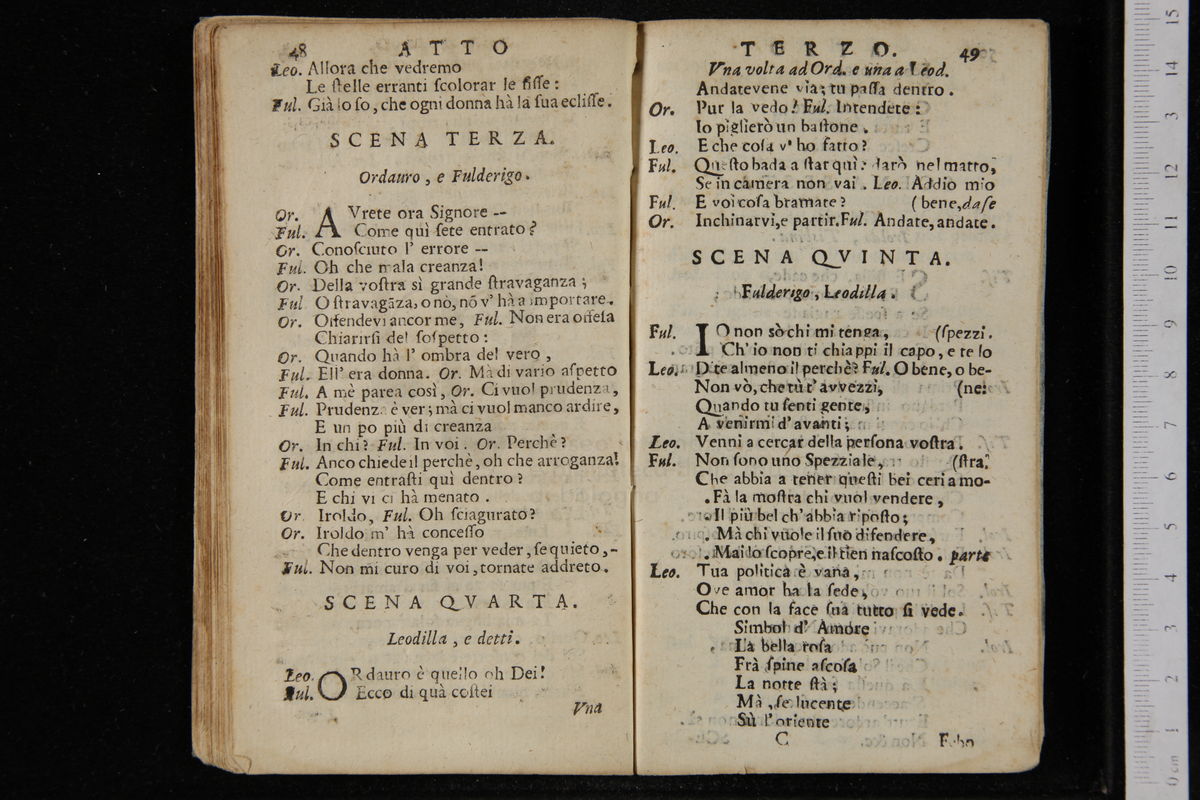 48 ATTO
Leo. Allora che vedremo
Le ſtelle erranti ſcolorar le fiſſe:
Ful. Già lo ſo, che ogni donna hà la ſua ecliſſe.
SCENA TERZA.
Ordauro, e Fulderigo.
Or. AVrete ora Signore --
Ful. Come quì ſete entrato?
Or. Conoſciuto l' errore --
Ful. Oh che mala creanza!
Or. Della voſtra sì grande ſtravaganza;
Ful O ſtravagāza, o nò, nō v' hà a importare.
Or. Offendevi ancor me, Ful. Non era offeſa
Chiarirſi del ſoſpetto:
Or. Quando hà l' ombra del vero,
Ful. Ell' era donna. Or. Mà di vario aſpetto
Ful. A mè parea così, Or. Ci vuol prudenza,
Ful. Prudenza è ver; mà ci vuol manco ardire,
E un po più di creanza
Or. In chi? Ful. In voi. Or. Perchè?
Ful. Anco chiede il perchè, oh che arroganza!
Come entraſti quì dentro?
E chi vi ci hà menato.
Or. Iroldo, Ful. Oh ſciagurato?
Or. Iroldo m' hà conceſſo
Che dentro venga per veder, ſe quieto,-
Ful. Non mi curo di voi, tornate addreto.
SCENA QVARTA.
Leodilla, e detti.
Leo. ORdauro è quello oh Dei!
Ful. Ecco di quà coſtei
Vna
TERZO. 49
Vna volta ad Ord. e una a Leod.
Andatevene via; tu paſſa dentro.
Or. Pur la vedo! Ful. Intendete:
Io piglierò un baſtone.
Leo. E che coſa v' ho fatto?
Ful. Queſto bada a ſtar quì: darò nel matto,
Se in camera non vai. Leo. Addio mio
Ful. E voi coſa bramate? (bene, da ſe
Or. Inchinarvi, e partir. Ful. Andate, andate.
SCENA QVINTA.
Fulderigo, Leodilla.
Ful. IO non sò chi mi tenga, (ſpezzi.
Ch' io non ti chiappi il capo, e te lo
Leo. Dite almeno il perchè? Ful. O bene, o be-
Non vò, che tù t' avvezzi, (ne:
Quando tu ſenti gente,
A venirmi d' avanti;
Leo. Venni a cercar della perſona voſtra.
Ful. Non ſono uno Spezziale, (ſtra.
Che abbia a tener queſti bei ceri a mo-
Fà la moſtra chi vuol vendere,
Il più bel ch' abbia ripoſto;
Mà chi vuole il ſuo difendere,
Mai lo ſcopre, e il tien naſcoſto. parte
Leo. Tua politica è vana,
Ove amor ha la ſede,
Che con la face ſua tutto ſi vede.
Simbol d' Amore
La bella roſa
Frà ſpine aſcoſa
La notte ſtà;
Mà, ſe lucente
Sù l' oriente
C Febo